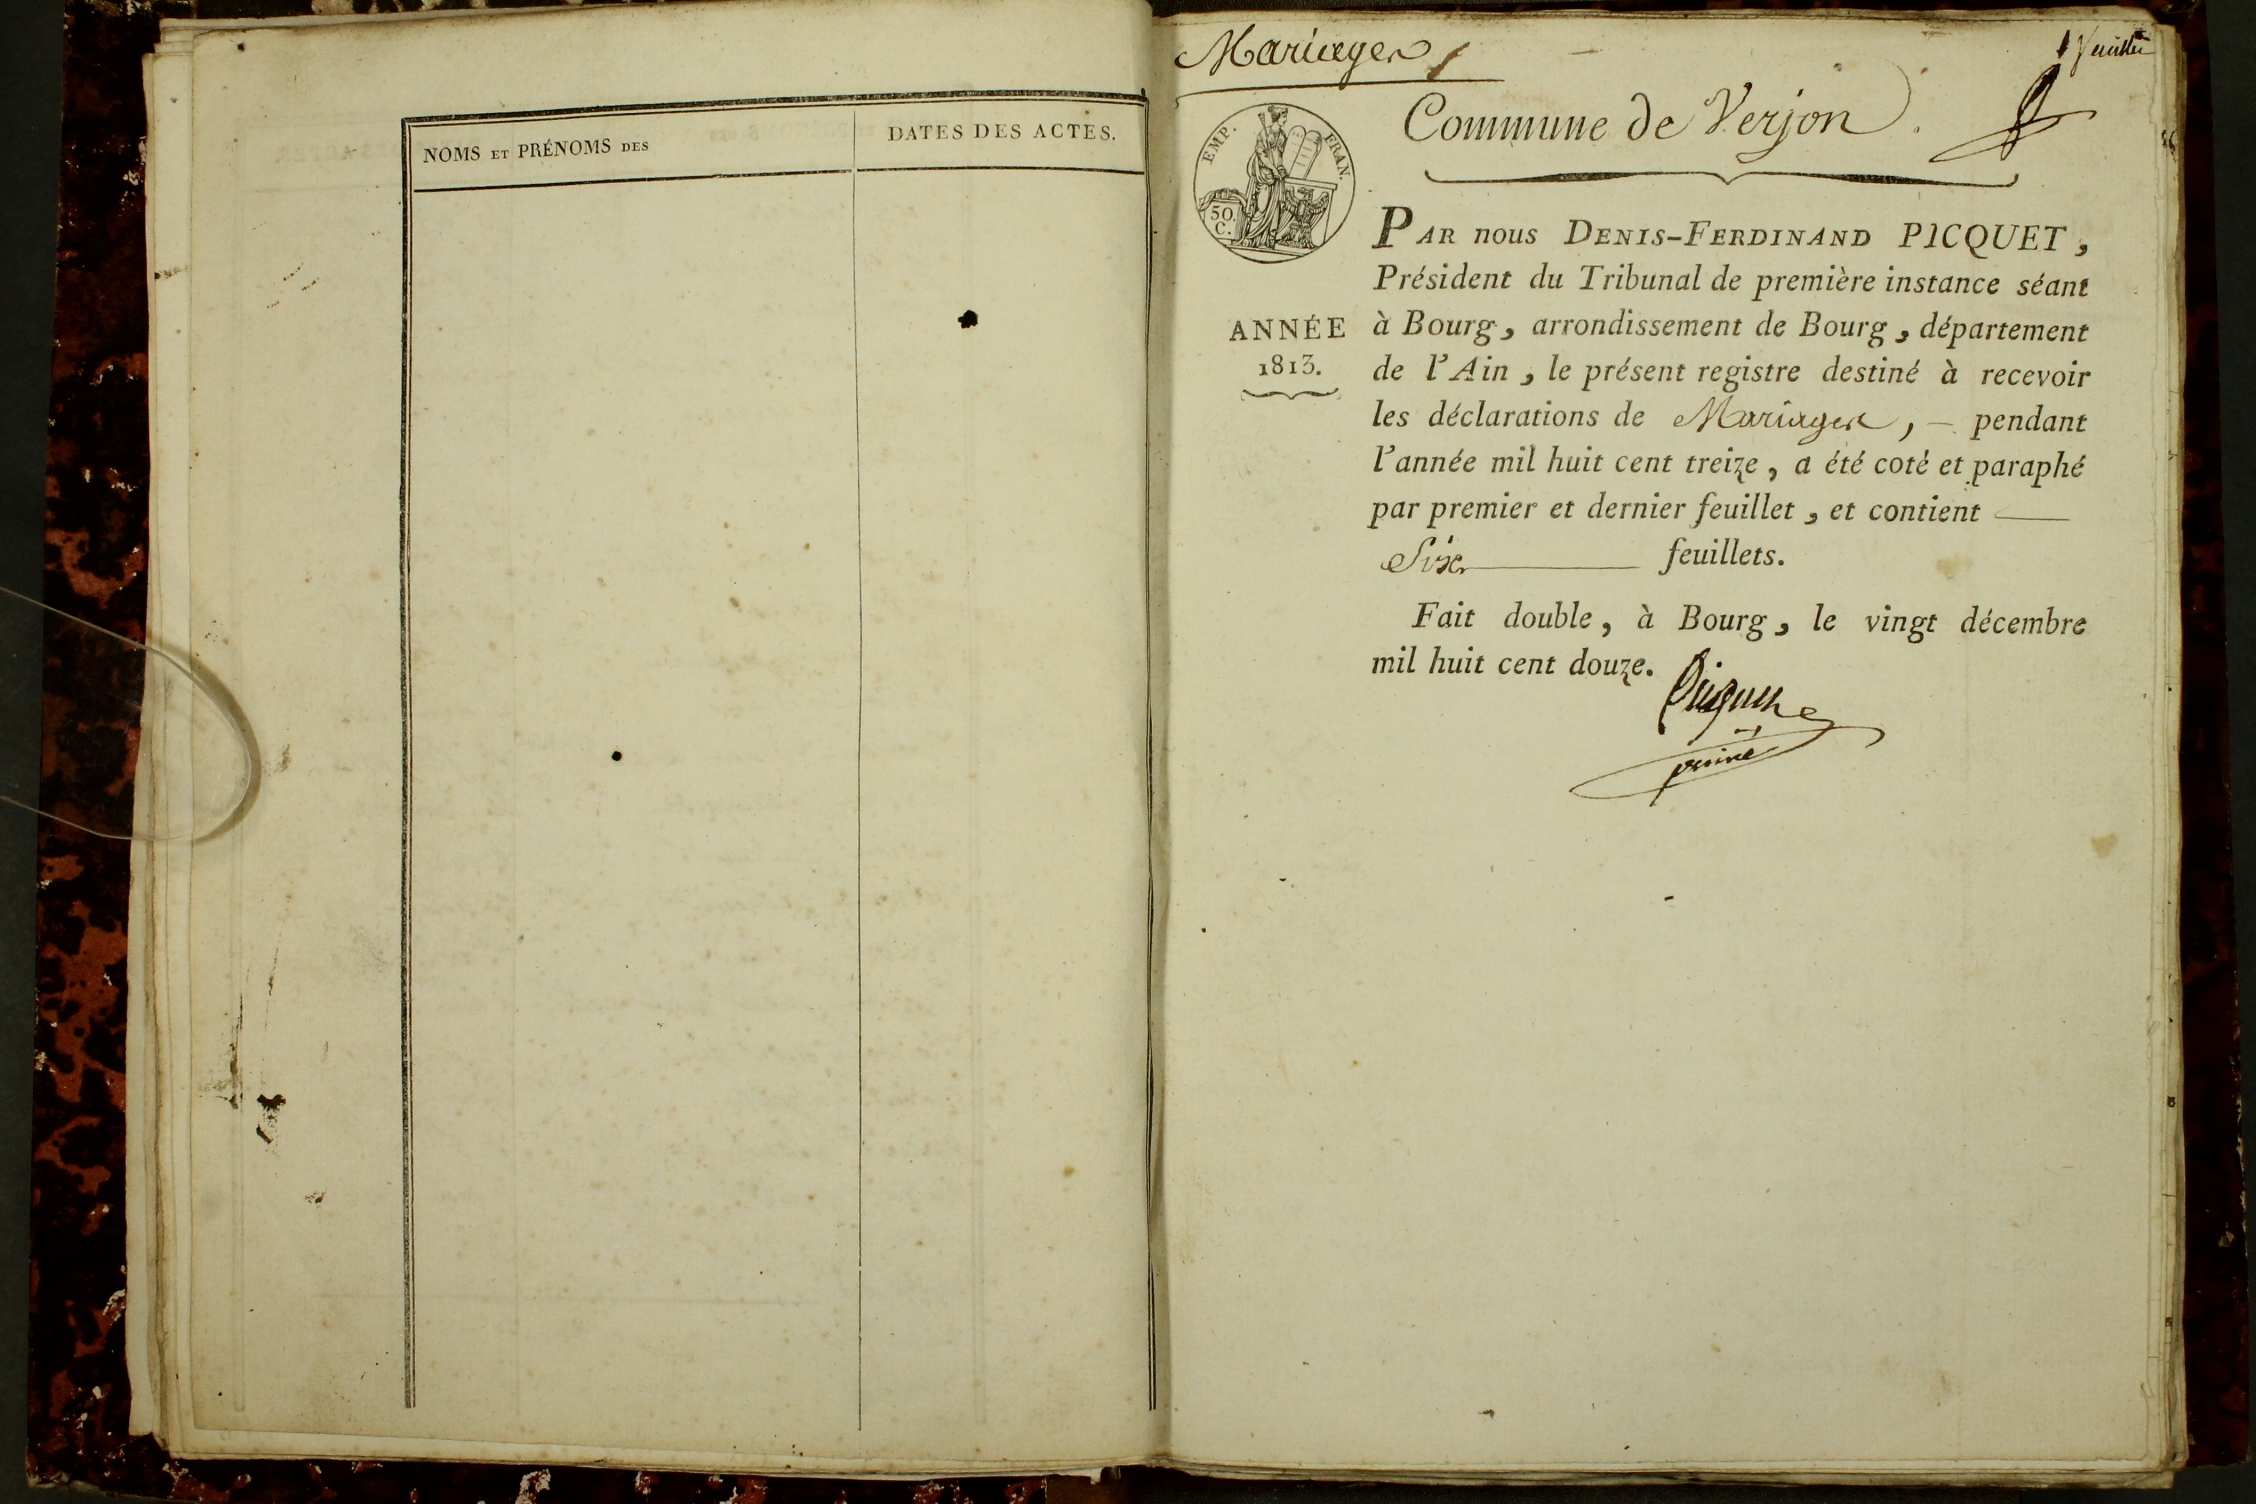 NOMS ET PRÉNOMS DES
DATES DES ACTES.
Mariages
1 feuillet
Commune de Verjon.
EMP. FRAN.
50.
C.
ANNÉE
1813.
PAR nous DENIS-FERDINAND PICQUET,
Président du Tribunal de première instance séant
à Bourg, arrondissement de Bourg, département
de l'Ain, le présent registre destiné à recevoir
les déclarations de Mariages, — pendant
l'année mil huit cent treize, a été coté et paraphé
par premier et dernier feuillet, et contient
Six feuillets.
Fait double, à Bourg, le vingt décembre
mil huit cent douze.
Picquet